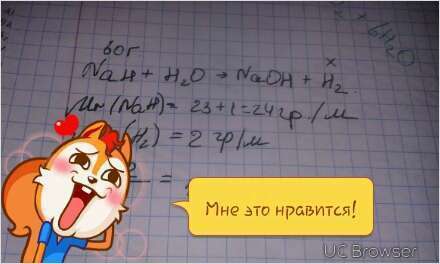 60г x
NaH + H₂O → NaOH + H₂.
Mr(NaH) = 23 + 1 = 24 гр/м
(H₂) = 2 гр/м
=
Мне это нравится!
UC Browser
+ 6H₂O